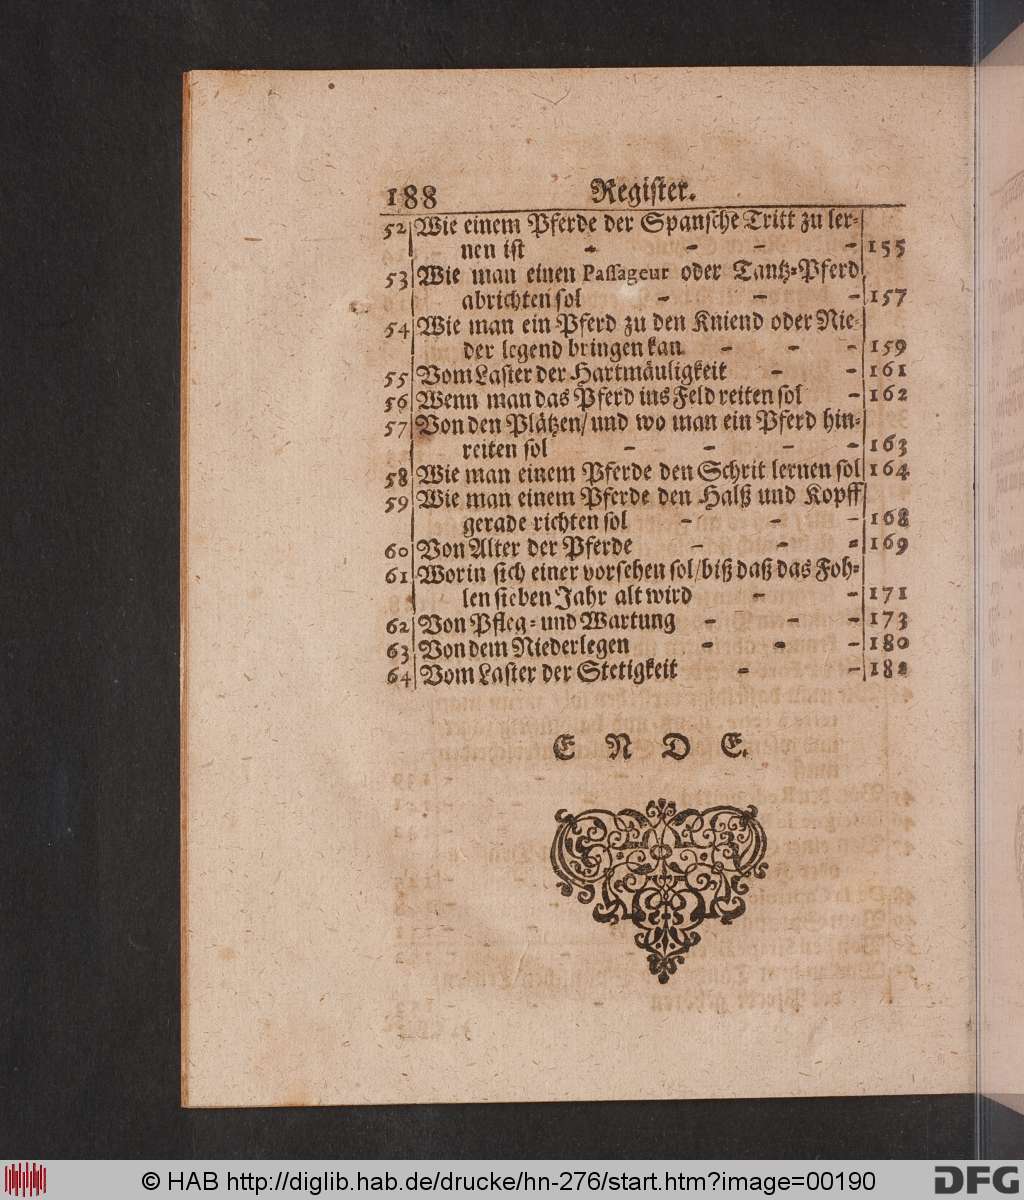 188 Register.
52 Wie einem Pferde der Spansche Tritt zu ler-
nen ist - - - - 155
53 Wie man einen Passageur oder Tantz-Pferd
abrichten sol - - - 157
54 Wie man ein Pferd zu den Kniend oder Nie-
der legend bringen kan. - - - 159
55 Vom Laster der Hartmäuligkeit - - 161
56 Wenn man das Pferd ins Feld reiten sol - 162
57 Von den Plätzen/ und wo man ein Pferd hin-
reiten sol - - - - 163
58 Wie man einem Pferde den Schrit lernen sol 164
59 Wie man einem Pferde den Halß und Kopff
gerade richten sol - - - 168
60 Von Alter der Pferde - - - 169
61 Worin sich einer vorsehen sol/ biß daß das Foh-
len sieben Jahr alt wird - - 171
62 Von Pfleg- und Wartung - - - 173
63 Von dem Niederlegen - - - 180
64 Vom Laster der Stetigkeit - - 182
E N D E.
© HAB http://diglib.hab.de/drucke/hn-276/start.htm?image=00190
DFG